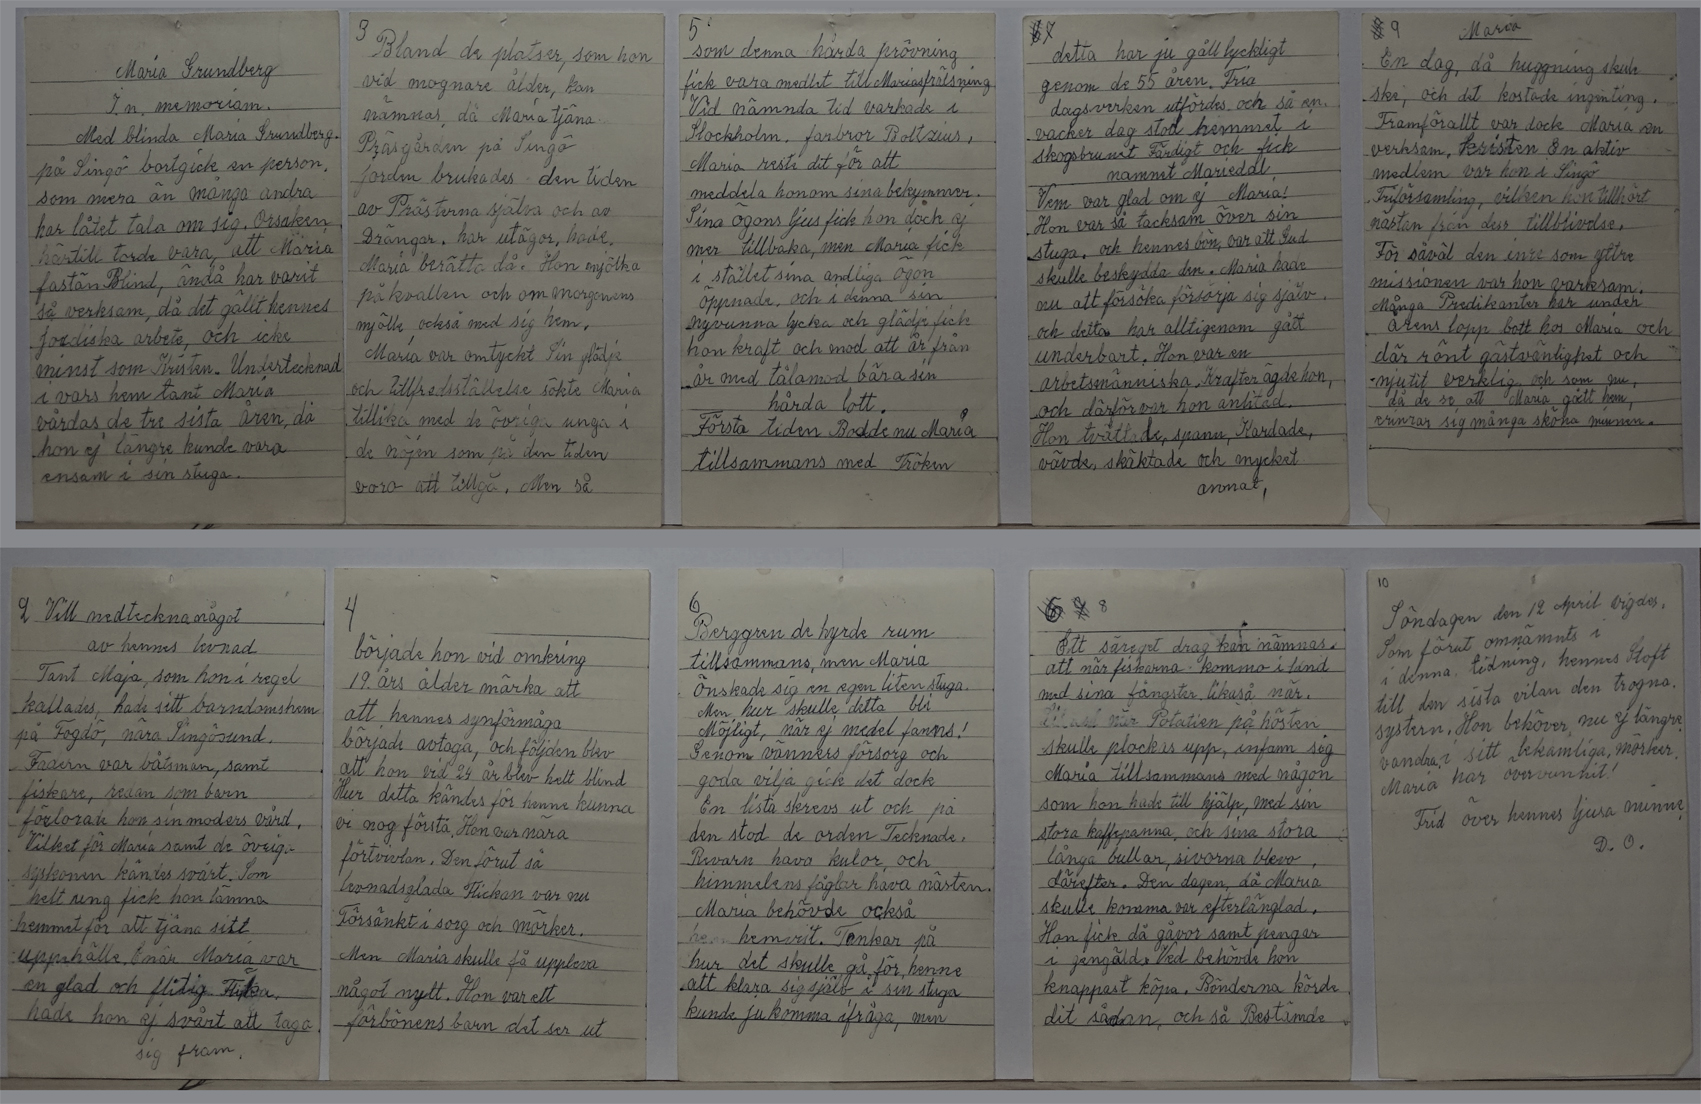 Maria Grundberg
In memoriam.
Med blinda Maria Grundberg.
på Singö bortgick en person.
som mera än många andra
har låtet tala om sig. Orsaken
härtill torde vara, att Maria
fastän Blind, ändå har varit
så verksam, då det gällt hennes
jordiska arbete, och icke
minst som Kristen. Undertecknad
i vars hem tant Maria
vårdas de tre sista åren, då
hon ej längre kunde vara
ensam i sin stuga.
2 Vill nedteckna något
av hennes levnad
Tant Maja, som hon i regel
kallades, hade sitt barndomshem
på Fogdö, nära Singösund.
Fadern var båtsman, samt
fiskare, redan som barn
förlorade hon sin moders vård.
Vilket för Maria samt de övriga
syskonen kändes svårt. Som
helt ung fick hon lämna
hemmet för att tjäna sitt
uppehälle. Enär Maria var
en glad och flitig Flicka,
hade hon ej svårt att taga
sig fram.
3
Bland de platser, som hon
vid mognare ålder, kan
nämnas, då Maria tjäna
Präsgården på Singö
jorden brukades den tiden
av Prästerna själva och av
Drängar. har utägor, hade,
Maria berätta då. Hon mjölka
på kvällen och om morgonens
mjölk också med sig hem.
Maria var omtyckt Sin glädje
och tillfredsställelse sökte Maria
tillika med de övriga unga i
de nöjen som på den tiden
voro att tillgå. Men så
4
började hon vid omkring
19. års ålder märka att
att hennes synförmåga
började avtaga, och följden blev
att hon vid 24 år blev helt blind
Hur detta kändes för henne kunna
vi nog förstå. Hon var nära
förtvivlan. Den förut så
levnadsglada Flickan var nu
Försänkt i sorg och mörker.
Men Maria skulle få uppleva
något nytt. Hon var ett
förbönens barn det ser ut
5
som denna hårda prövning
fick vara medlet till Marias frälsning
Vid nämnda tid varkade i
Stockholm. farbror Boltzius,
Maria reste dit för att
meddela honom sina bekymmer.
Sina ögons ljus fick hon dock ej
mer tillbaka, men Maria fick
i stället sina andliga ögon
öppnade. och i denna sin
nyvunna lycka och glädje fick
hon kraft och mod att år från
år med tålamod bära sin
hårda lott.
Första tiden Bodde nu Maria
tillsammans med Fröken
6
Berggren de hyrde rum
tillsammans, men Maria
Önskade sig en egen liten stuga.
Men hur skulle detta bli
Möjligt, när ej medel fanns!
Genom vänners försorg och
goda vilja gick det dock
En lista skrevs ut och på
den stod de orden Tecknade.
Rävarn hava kulor, och
himmelens fåglar hava nästen.
Maria behövde också
hemvist. Tankar på
hur det skulle gå för henne
att klara sig själv i sin stuga
kunde ju komma ifråga, men
7
detta har ju gått lyckligt
genom de 55 åren. Fria
dagsverken utfördes och så en.
vacker dag stod hemmet i
skogsbrunet Färdigt och fick
namnet Mariedal
Vem var glad om ej Maria!
Hon var så tacksam över sin
stuga. och hennes bön, var att Gud
skulle beskydda den. Maria hade
nu att försöka försörja sig själv.
och detta har alltigenom gått
underbart. Hon var en
arbetsmänniska. Krafter ägde hon,
och därför var hon anlitad.
Hon tvättade, spann, Kardade,
vävde, skäktade och mycket
annat,
8
Ett säreget drag kan nämnas.
att när fiskarna kommo i land
med sina fångster. likaså när.
när Potatisen på hösten
skulle plockas upp, infann sig
Maria tillsammans med någon
som hon hade till hjälp, med sin
stora kaffepanna och sina stora
långa bullar, sivorna blevo,
därefter. Den dagen, då Maria
skulle komma var efterlängtad.
Hon fick då gåvor samt pengar
i gengäld. Ved behövde hon
knappast köpa. Bönderna körde
dit sådan, och så Bestämde
9 Maria
En dag, då huggning skule
ske, och det kostade ingenting.
Framförallt var dock Maria en
verksam, kristen En aktiv
medlem var hon i Singö
Friförsamling, vilken hon tillhört
nästan från dess tillblivelse.
För såväl den inre som yttre
missionen var hon varksam.
Många Predikanter har under
årens lopp bott hos Maria och
där rönt gästvänlighet och
njutit verklig och som nu,
då de se att Maria gått hem,
erinrar sig många sköna minnen.
10
Söndagen den 12 April vigdes,
Som förut omnämnts i
i denna, tidning, hennes Stoft
till den sista vilan den trogna.
systern. Hon behöver nu ej längre
vandra, i sitt bekämliga, mörker.
Maria har övervunnit!
Frid över hennes ljusa minne
D. O.